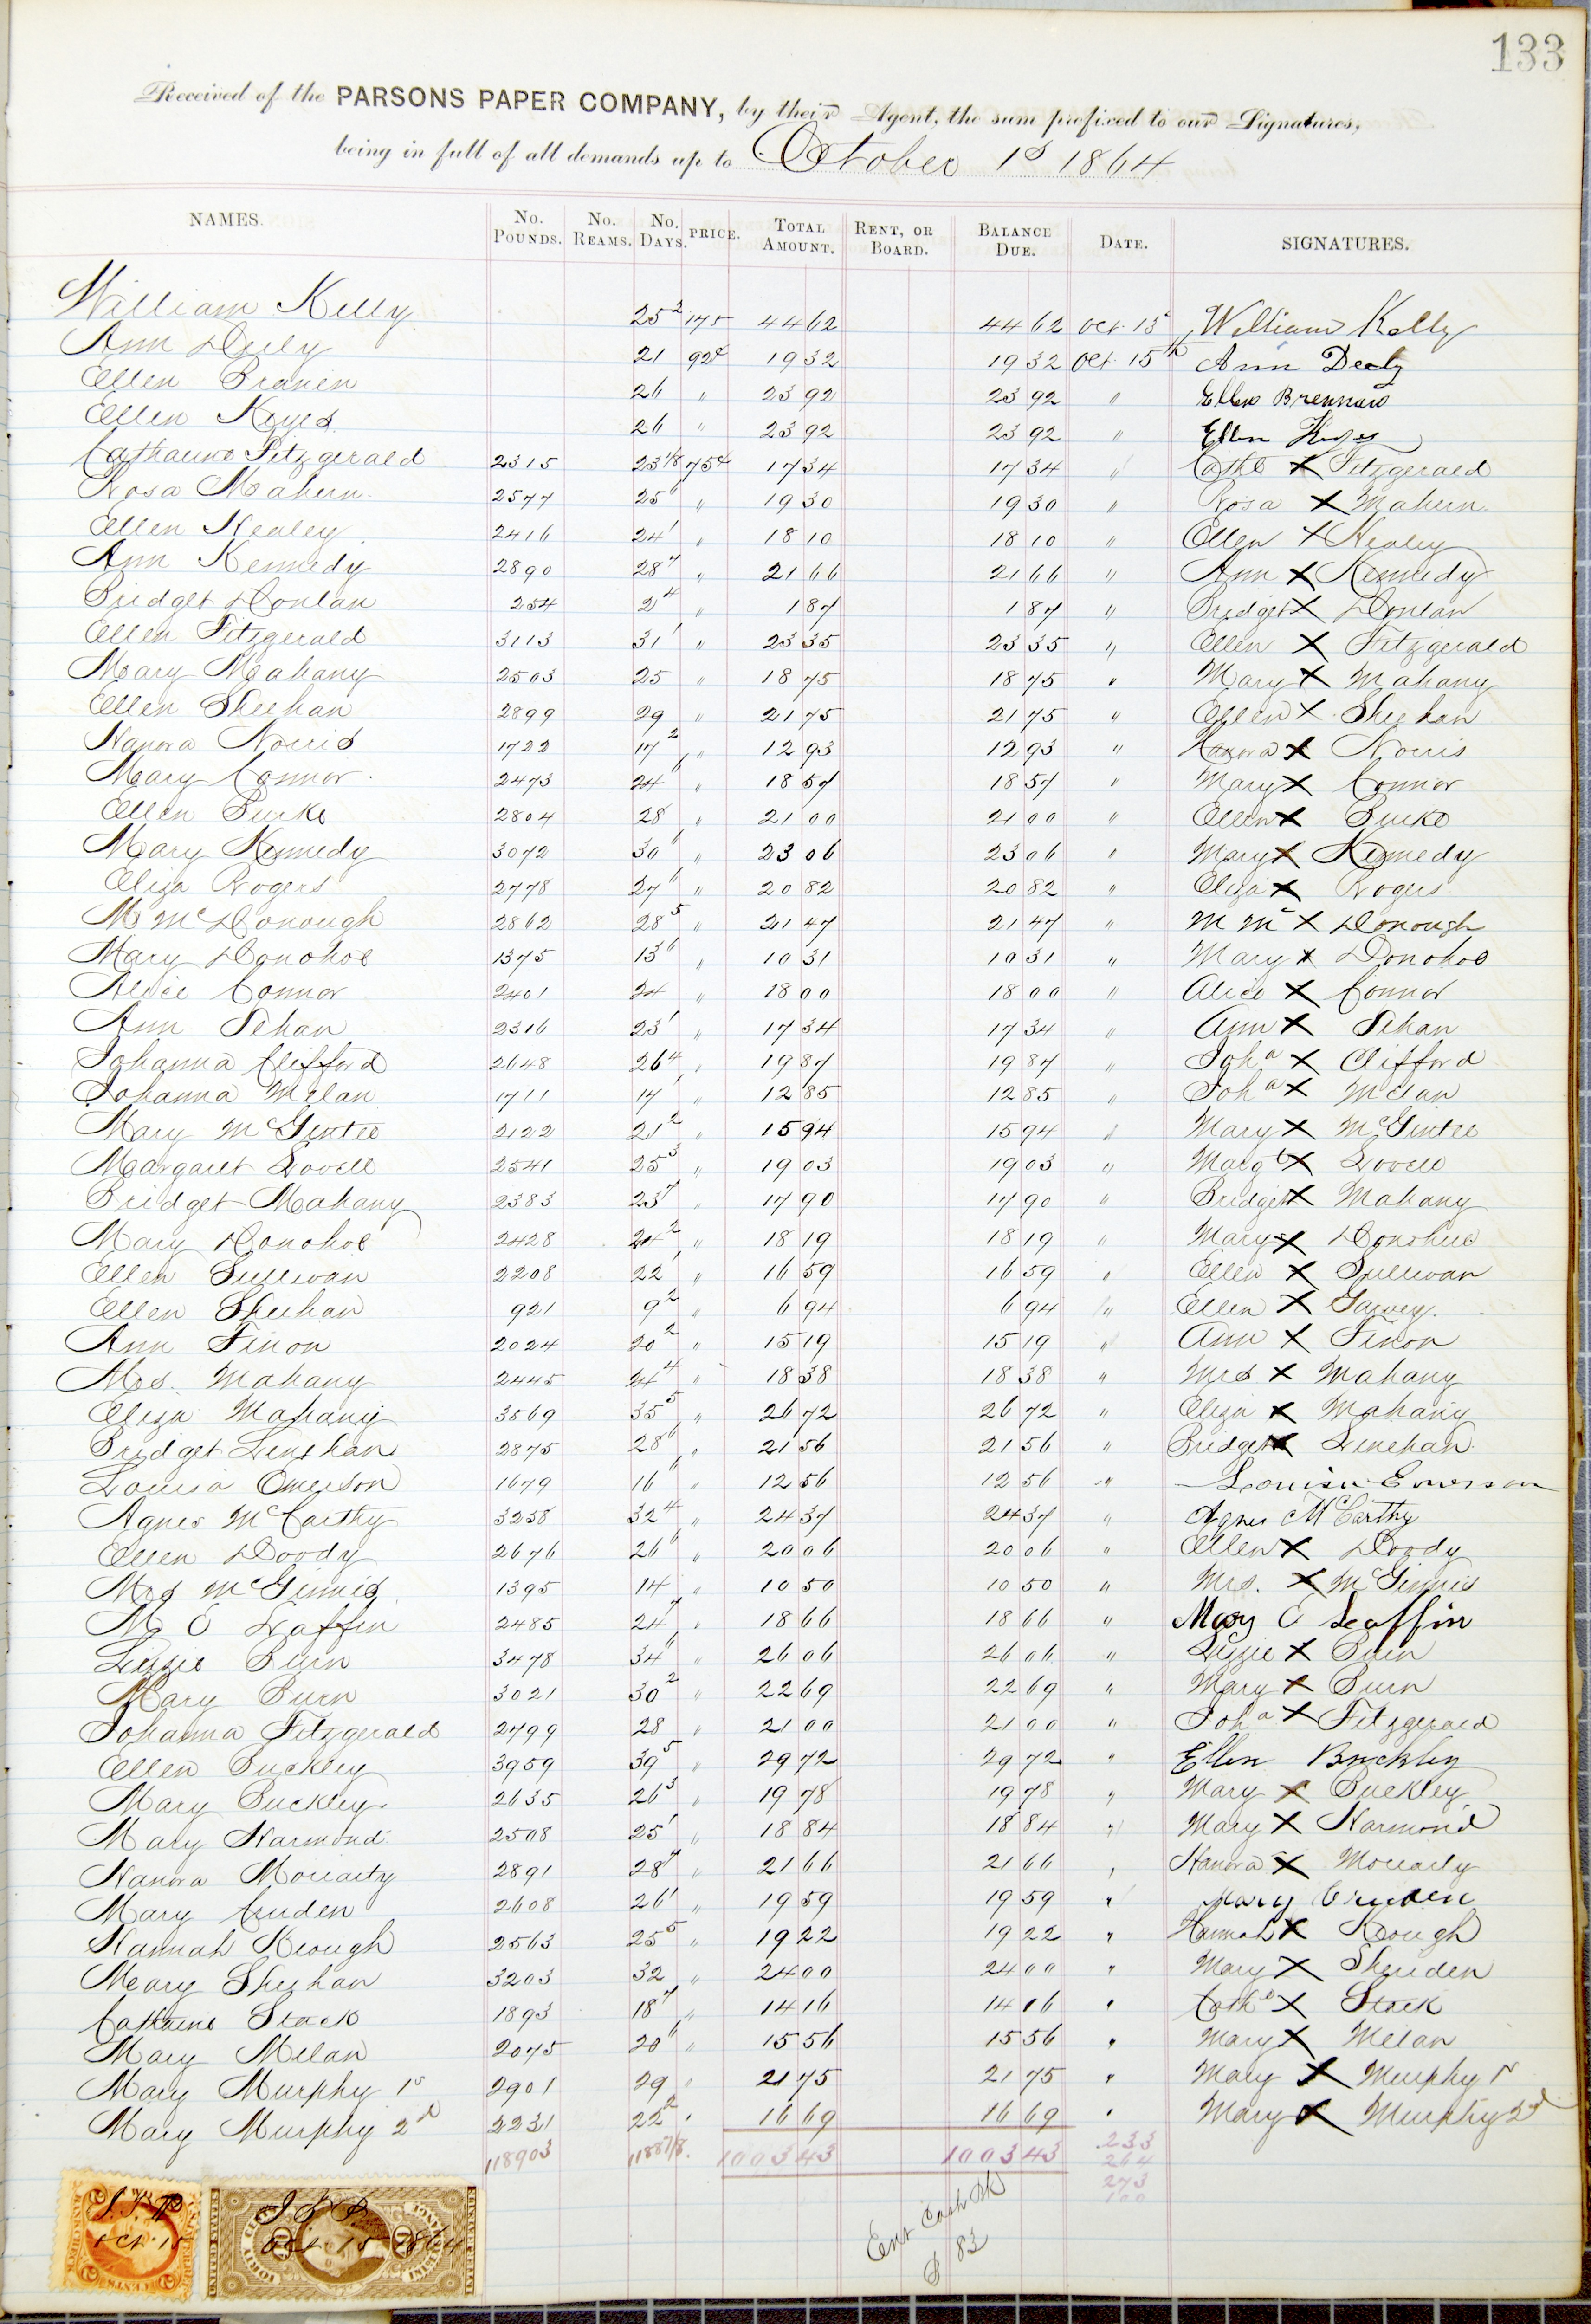 133
Received of the PARSONS PAPER COMPANY, by their Agent, the sum prefixed to our Signatures,
being in full of all demands up to October 1st 1864
NAMES. No. POUNDS. No. REAMS. No. DAYS. PRICE. TOTAL AMOUNT. RENT, OR BOARD. BALANCE DUE. DATE. SIGNATURES.
William Kelly 25 2 175 44 62 44 62 Oct. 15 William Kelly
Ann Deely 21 92¢ 19 32 19 32 Oct. 15th Ann Deely
Ellen Branen 26 " 23 92 23 92 " Ellen Brennan
Ellen Keyes 26 " 23 92 23 92 " Ellen Keyes
Catharine Fitzgerald 2315 23 1/8 75¢ 17 34 17 34 " Cathe X Fitzgerald
Rosa Mahern 2577 25 6 " 19 30 19 30 " Rosa X Mahern
Ellen Healey 2416 24 1 " 18 10 18 10 " Ellen X Healey
Ann Kennedy 2890 28 7 " 21 66 21 66 " Ann X Kennedy
Bridget Donlan 254 2 4 " 1 87 1 87 " Bridget X Donlan
Ellen Fitzgerald 3113 31 1 " 23 35 23 35 " Ellen X Fitzgerald
Mary Mahany 2503 25 " 18 75 18 75 " Mary X Mahany
Ellen Sheehan 2899 29 " 21 75 21 75 " Ellen X Sheehan
Hanora Norris 1722 17 2 " 12 93 12 93 " Hanora X Norris
Mary Connor 2473 24 6 " 18 57 18 57 " Mary X Connor
Ellen Burke 2804 28 " 21 00 21 00 " Ellen X Burke
Mary Kennedy 3072 30 6 " 23 06 23 06 " Mary X Kennedy
Eliza Rogers 2778 27 6 " 20 82 20 82 " Eliza X Rogers
M McDonough 2862 28 5 " 21 47 21 47 " M Mc X Donough
Mary Donohoe 1375 13 6 " 10 31 10 31 " Mary X Donohoe
Alice Connor 2401 24 " 18 00 18 00 " Alice X Connor
Ann Sehan 2316 23 1 " 17 34 17 34 " Ann X Sehan
Johanna Clifford 2648 26 4 " 19 87 19 87 " Joha X Clifford
Johanna Melan 1711 17 1 " 12 85 12 85 " Joha X Melan
Mary McGintee 2122 21 2 " 15 94 15 94 " Mary X McGintee
Margaret Lovell 2541 25 3 " 19 03 19 03 " Margt X Lovell
Bridget Mahany 2383 23 7 " 17 90 17 90 " Bridget X Mahany
Mary Donohoe 2428 24 2 " 18 19 18 19 " Mary X Donohue
Ellen Sullivan 2208 22 1 " 16 59 16 59 " Ellen X Sullivan
Ellen Sheehan 921 9 2 " 6 94 6 94 " Ellen X Garvey
Ann Finon 2024 20 2 " 15 19 15 19 " Ann X Finon
Mrs. Mahany 2445 24 4 " 18 38 18 38 " Mrs X Mahany
Eliza Mahany 3569 35 5 " 26 72 26 72 " Eliza X Mahany
Bridget Linehan 2875 28 6 " 21 56 21 56 " Bridget X Linehan
Louisa Emerson 1679 16 6 " 12 56 12 56 " Louisa Emerson
Agnes McCarthy 3258 32 4 " 24 37 24 37 " Agnes McCarthy
Ellen Doody 2676 26 6 " 20 06 20 06 " Ellen X Doody
Mrs McGinnis 1395 14 " 10 50 10 50 " Mrs. X McGinnis
M E Laffin 2485 24 7 " 18 66 18 66 " Mary E Laffin
Lizzie Burn 3478 34 6 " 26 06 26 06 " Lizzie X Burn
Mary Burn 3021 30 2 " 22 69 22 69 " Mary X Burn
Johanna Fitzgerald 2799 28 " 21 00 21 00 " Joha X Fitzgerald
Ellen Buckley 3959 39 5 " 29 72 29 72 " Ellen Buckley
Mary Buckley 2635 26 3 " 19 78 19 78 " Mary X Buckley
Mary Harmond 2508 25 1 " 18 84 18 84 " Mary X Harmond
Hanora Moriarty 2891 28 7 " 21 66 21 66 " Hanora X Moriarty
Mary Cruden 2608 26 1 " 19 59 19 59 " Mary Cruden
Hannah Keough 2563 25 5 " 19 22 19 22 " Hannah X Keough
Mary Sheehan 3203 32 " 24 00 24 00 " Mary X Sheriden
Catharine Stack 1893 18 7 " 14 16 14 16 " Cathe X Stack
Mary Melan 2075 20 6 " 15 56 15 56 " Mary X Melan
Mary Murphy 1st 2901 29 " 21 75 21 75 " Mary X Murphy 1st
Mary Murphy 2d 2231 22 2 " 16 69 16 69 " Mary X Murphy 2d
118903 1188 7/8 1003 43 1003 43 233
264
273
100
Ent Cash Bk
P 83
J. S. P.
Oct. 15
J S P
Oct. 15 1864